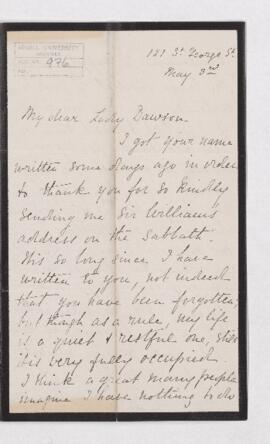 McGILL UNIVERSITY
ARCHIVES
ACC. NO. 976
REF.
121 St George St.
May 3rd
My dear Lady Dawson.
I got your name
written some days ago in order
to thank you for so kindly
sending me Sir William's
address on the Sabbath
Tis so long since I have
written to you, not indeed
that you have been forgotten;
but though as a rule, my life
is a quiet & restful one, still
it is very fully occupied.
I think a great many people
imagine I have nothing to do